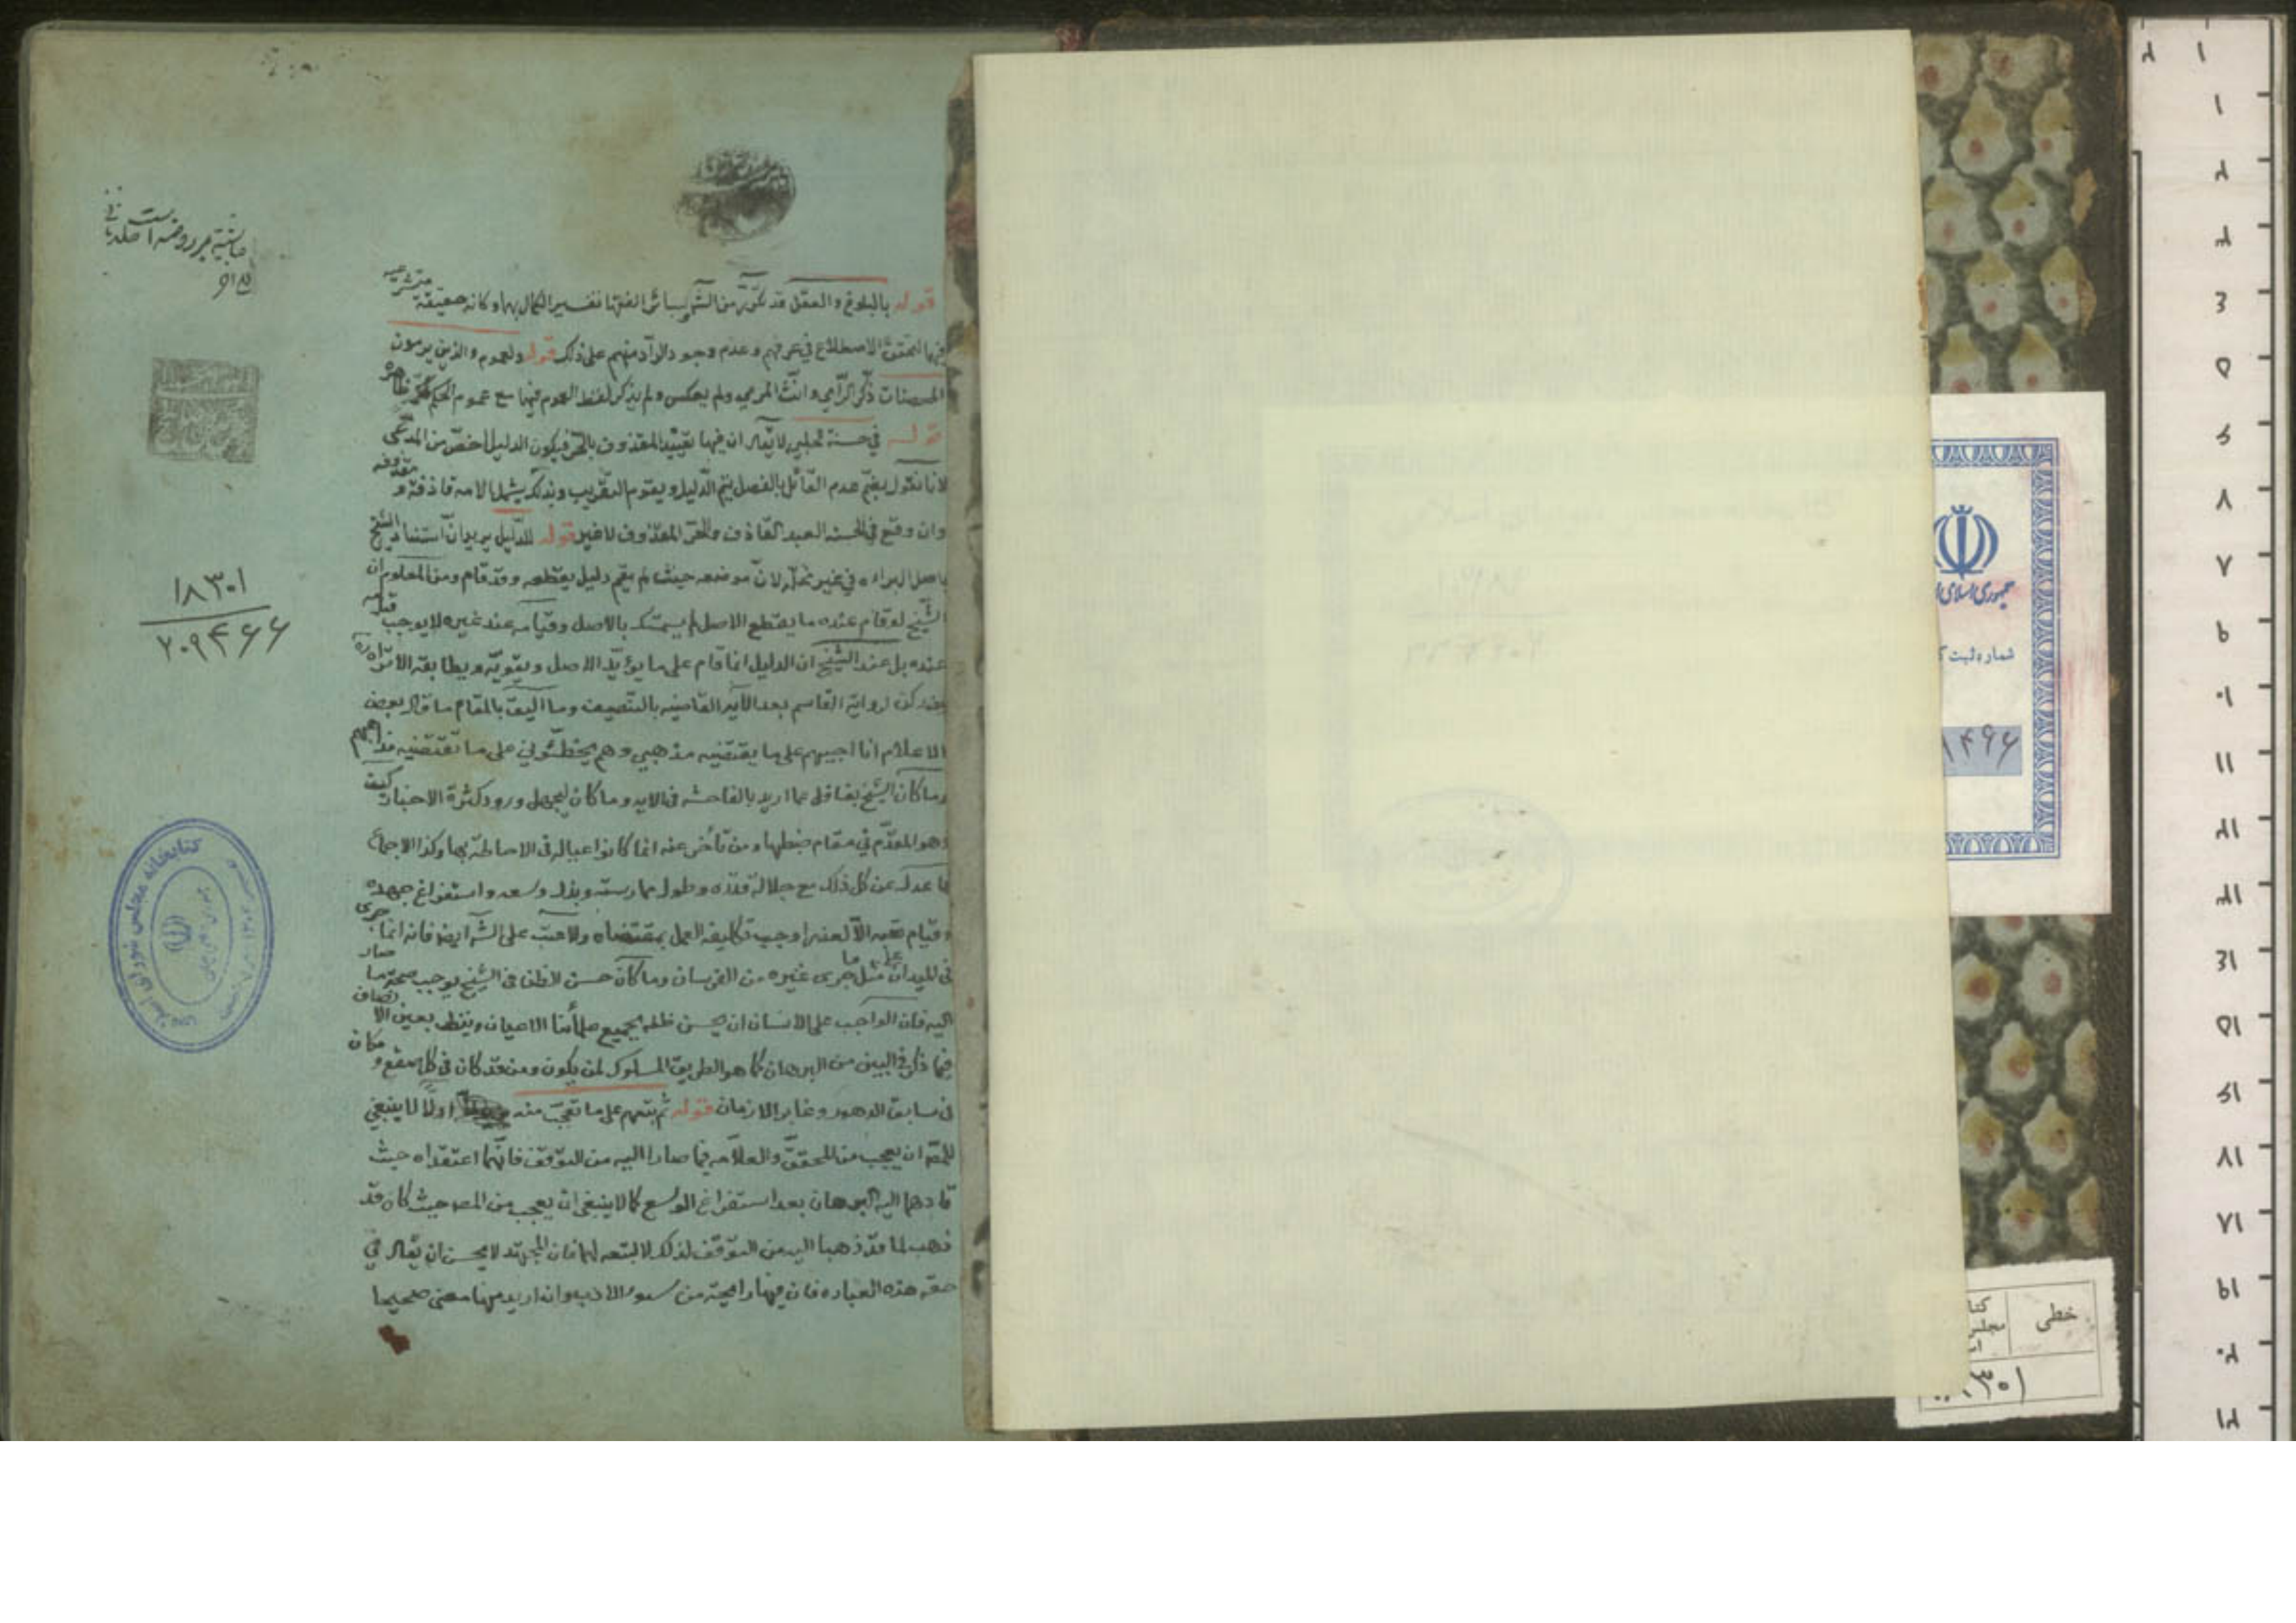 قوله بالبلوغ والعقل قد تكرّر من الشّ سائر الفقها تفسير الكمال بهما وكانه حقيقة متشرعيه
فيها لتحقق الاصطلاح في عرفهم وعدم وجود الرادّ منهم على ذلك قوله ولعموم والذين يرمون
المحصنات ذكّر الرّامي وانّث المرمي ولم يعكس ولم يذكر لفظ العموم فيها مع عموم الحكم
قوله في حسنة الحلبي لا يقال ان فيها تقييد المقذوف بالحرّ فيكون الدليل اخصّ من المدّعى
لانا نقول بضمّ عدم القائل بالفصل يتم الدّليل ويقوم التقريب وبذلك يشمل الامه قاذفة و مقذوفه
وان وقع في الحسنه العبد القاذف والحرّ المقذوف لا غير قوله للدّليل يريد انّ استناد الشيخ
باصل البراءه في غير محلّه لانّ موضعه حيث لم يقم دليل يقطعه وقد قام ومن المعلوم ان
الشّيخ لو قام عنده ما يقطع الاصل لم يتمسّك بالاصل وقيامه عند غيره لا يوجب قيامه
عنده بل عند الشّيخ ان الدليل انما قام على ما يؤيّد الاصل ويقوّيه ويطابقه الا تراه
لرواية القاسم بعد الآيه القاضيه بالتنصيف وما اليق بالمقام ما قال بعض
الاعلام انا اجيبهم على ما يقتضيه مذهبي وهم يخطّئوني على ما تقتضيه مذاهبهم
وما كان الشّيخ بغافل عما اريد بالفاحشه في الايه وما كان ليجهل ورود كثرة الاخبار كيف
وهو المقدّم في مقام ضبطها ومن تأخر عنه انما كانوا عياله في الاحاطة بها وكذا الاجماع
فما عدله عن كل ذلك مع جلالة قدره وطول ممارسته وبذل وسعه واستفراغ جهده
وقيام اوجب تكليفه العمل بمقتضاه ولا عتب على الشّ ايضا فانه انما جرى
في الميدان على مثل ما جرى غيره من الفرسان وما كان حسن الظن في الشيخ يوجب صحة ما صار
اليه فان الواجب على الانسان ان يحسن ظنه بجميع علمائنا الاعيان وينظر بعين الانصاف
فيما ذكر في البين من البرهان كما هو الطريق المسلوك لمن يكون ومن قد كان في كل صقع و مكان
في سابق الدهور وغابر الازمان قوله ثم يتهم على ما تعجّب منه اولًا لا ينبغي
للمصّ ان يعجب من المحقق والعلّامه فيما صارا اليه من التوقف فانّهما اعتقداه حيث
قادهما اليه البرهان بعد استفراغ الوسع كما لا ينبغي ان يعجب من المصّ حيث كان قد
ذهب لما قد ذهبا اليه من التوقّف لذلك لا لتبعه لهما فان المجتهد لا يحسن ان يقال في
حقه هذه العباره فان فيها رايحة من سوء الادب وان اريد منها معنى صحيحا
حاشيه بر روضه است
۹۱۵
۱۸۳۰۱
۲۰۹۴۶۶
کتابخانه مجلس شورای اسلامی
جمهوری اسلامی
شماره ثبت
خطی